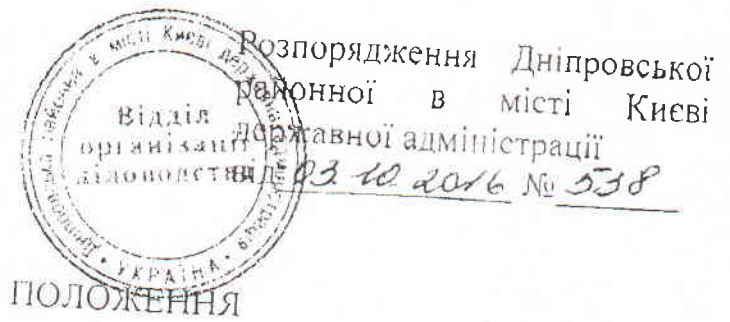 Розпорядження Дніпровської
районної в місті Києві
державної адміністрації
від 03.10.2016 № 538
Відділ
організації
діловодства
УКРАЇНА
ПОЛОЖЕННЯ